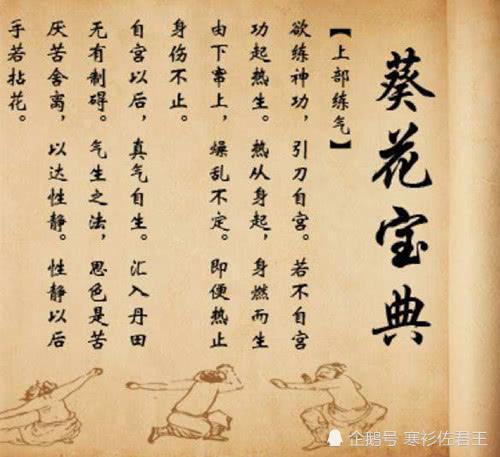 葵花宝典
【上部练气】
欲练神功，引刀自宫。若不自宫
功起热生。热从身起，身燃而生
由下窜上，燥乱不定。即便热止
身伤不止。
自宫以后，真气自生。汇入丹田
无有制碍。气生之法，思色是苦
厌苦舍离，以达性静。性静以后
手若拈花。
企鹅号 寒衫佐君王